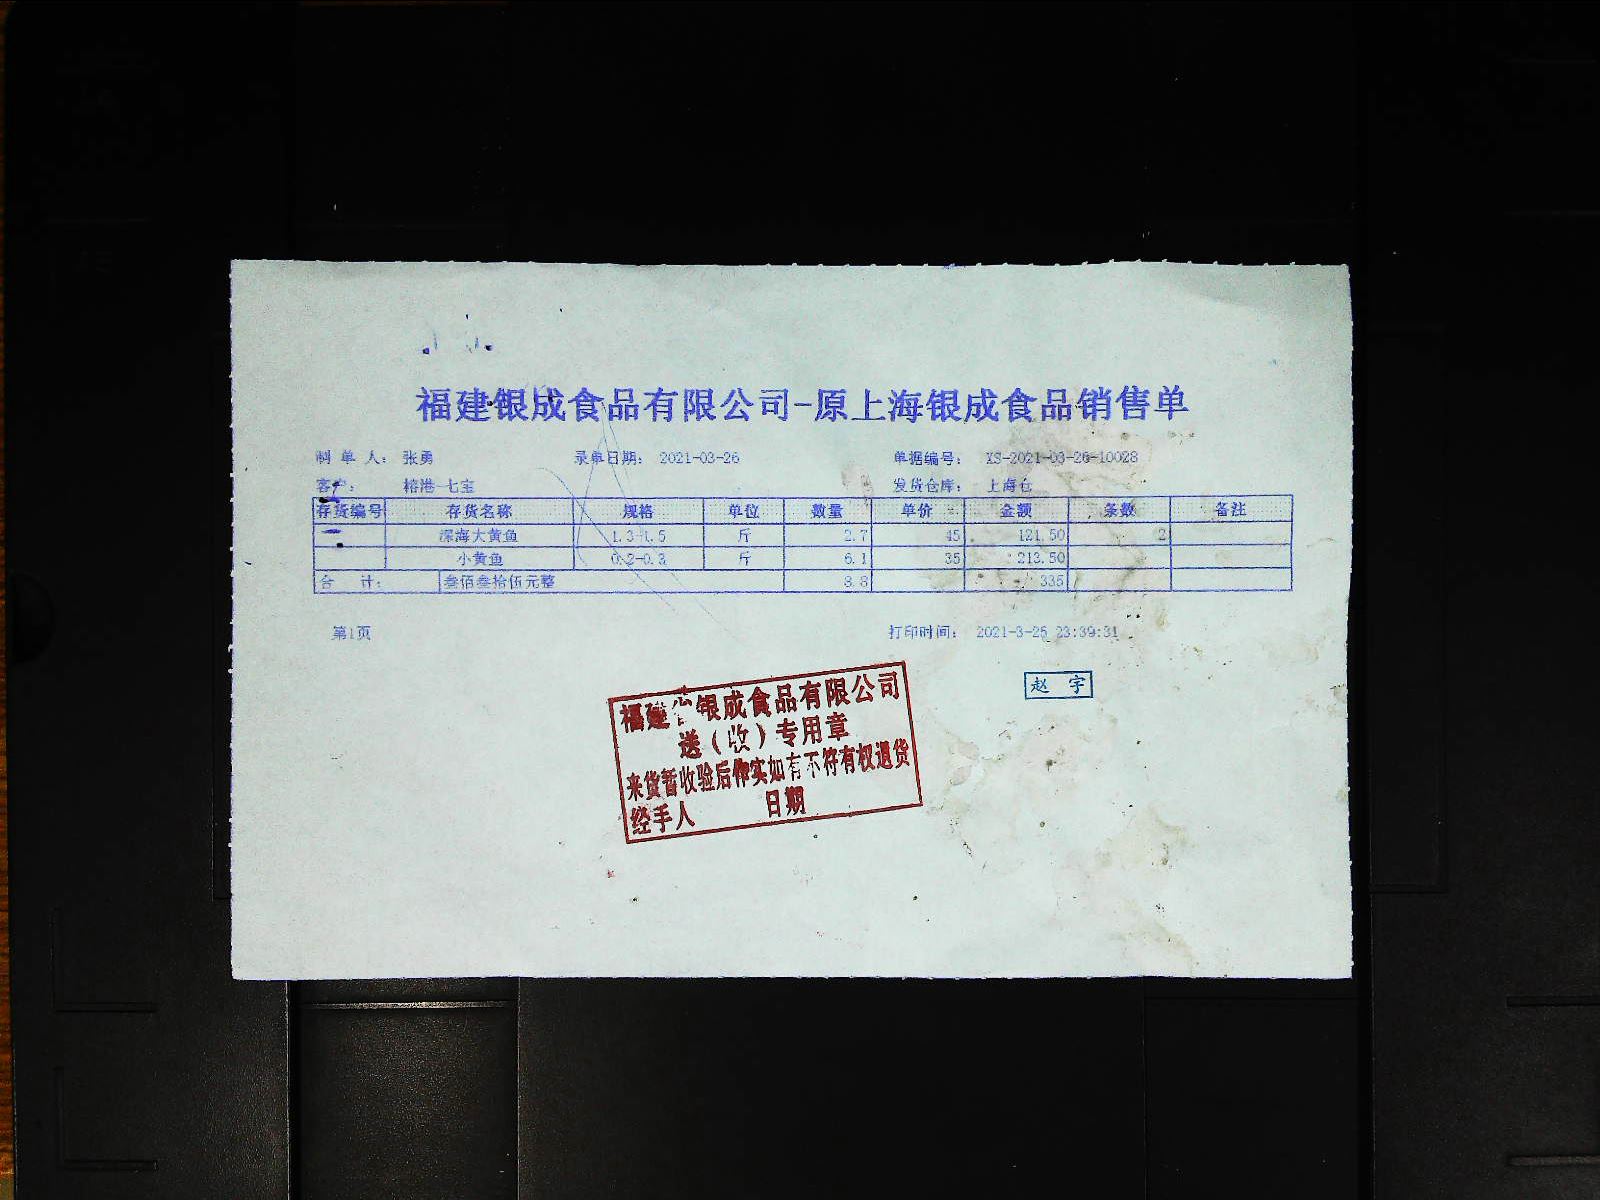 福建银成食品有限公司-原上海银成食品销售单
制 单 人： 张勇 录单日期： 2021-03-26 单据编号： XS-2021-03-26-10028
客户： 榕港-七宝 发货仓库： 上海仓
存货编号 存货名称 规格 单位 数量 单价 金额 条数 备注
深海大黄鱼 1.3-1.5 斤 2.7 45 121.50 2
小黄鱼 0.2-0.3 斤 6.1 35 213.50
合 计： 叁佰叁拾伍元整 8.8 335
第1页 打印时间： 2021-3-25 23:39:31
赵 宇
福建省银成食品有限公司
送（收）专用章
来货暂收验后伸实如有不符有权退货
经手人 日期